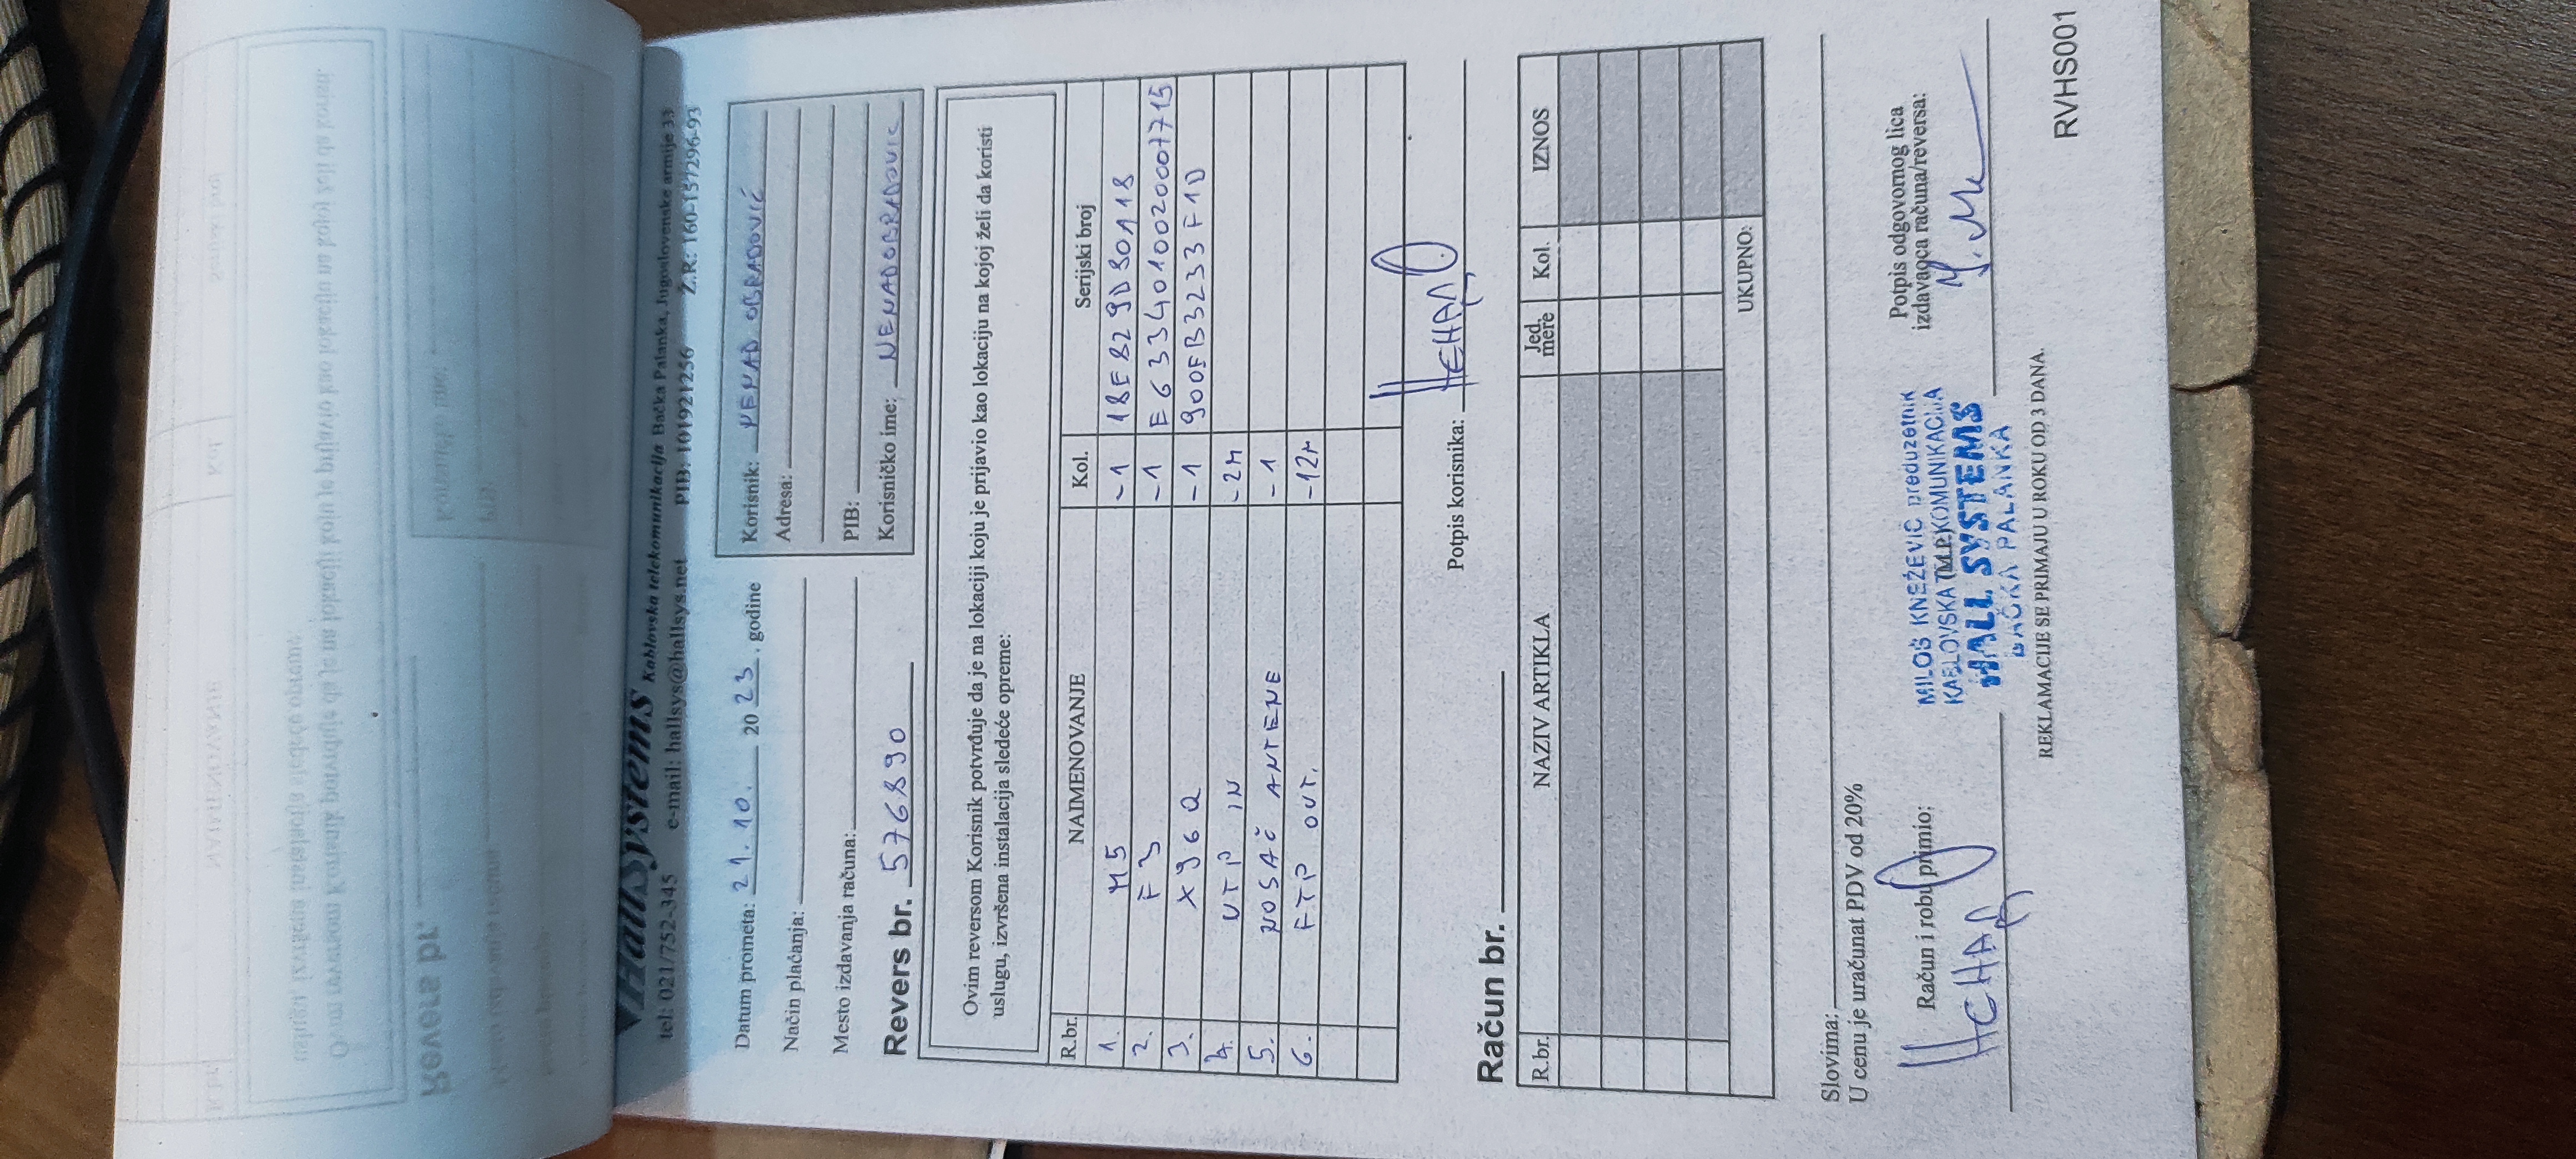 HallSystems Kablovska telekomunikacija Bačka Palanka, Jugoslovenske armije 33
tel: 021/752-345 e-mail: hallsys@hallsys.net PIB: 101921256 Ž.R: 160-157296-93
Datum prometa: 21.10. 2023. godine
Način plaćanja:
Mesto izdavanja računa:
Revers br. 576890
Korisnik: NENAD OBRADOVIĆ
Adresa:
PIB:
Korisničko ime: NENADOBRADOVIC
Ovim reversom Korisnik potvrđuje da je na lokaciji koju je prijavio kao lokaciju na kojoj želi da koristi
uslugu, izvršena instalacija sledeće opreme:
R.br. NAIMENOVANJE Kol. Serijski broj
1. M5 -1 18E829D80118
2. F3 -1 E63340100200077 15
3. X96Q -1 900EB3233F1D
4. UTP IN -2M
5. NOSAČ ANTENE -1
6. FTP OUT. -12M
Potpis korisnika: НЕНАД О.
Račun br.
R.br. NAZIV ARTIKLA Jed. mere Kol. IZNOS
UKUPNO:
Slovima:
U cenu je uračunat PDV od 20%
Račun i robu primio:
НЕНАД
MILOŠ KNEŽEVIĆ preduzetnik
KABLOVSKA TELEKOMUNIKACIJA
HALL SYSTEMS
BAČKA PALANKA
(M.P.)
Potpis odgovornog lica
izdavaoca računa/reversa:
REKLAMACIJE SE PRIMAJU U ROKU OD 3 DANA.
RVHS001